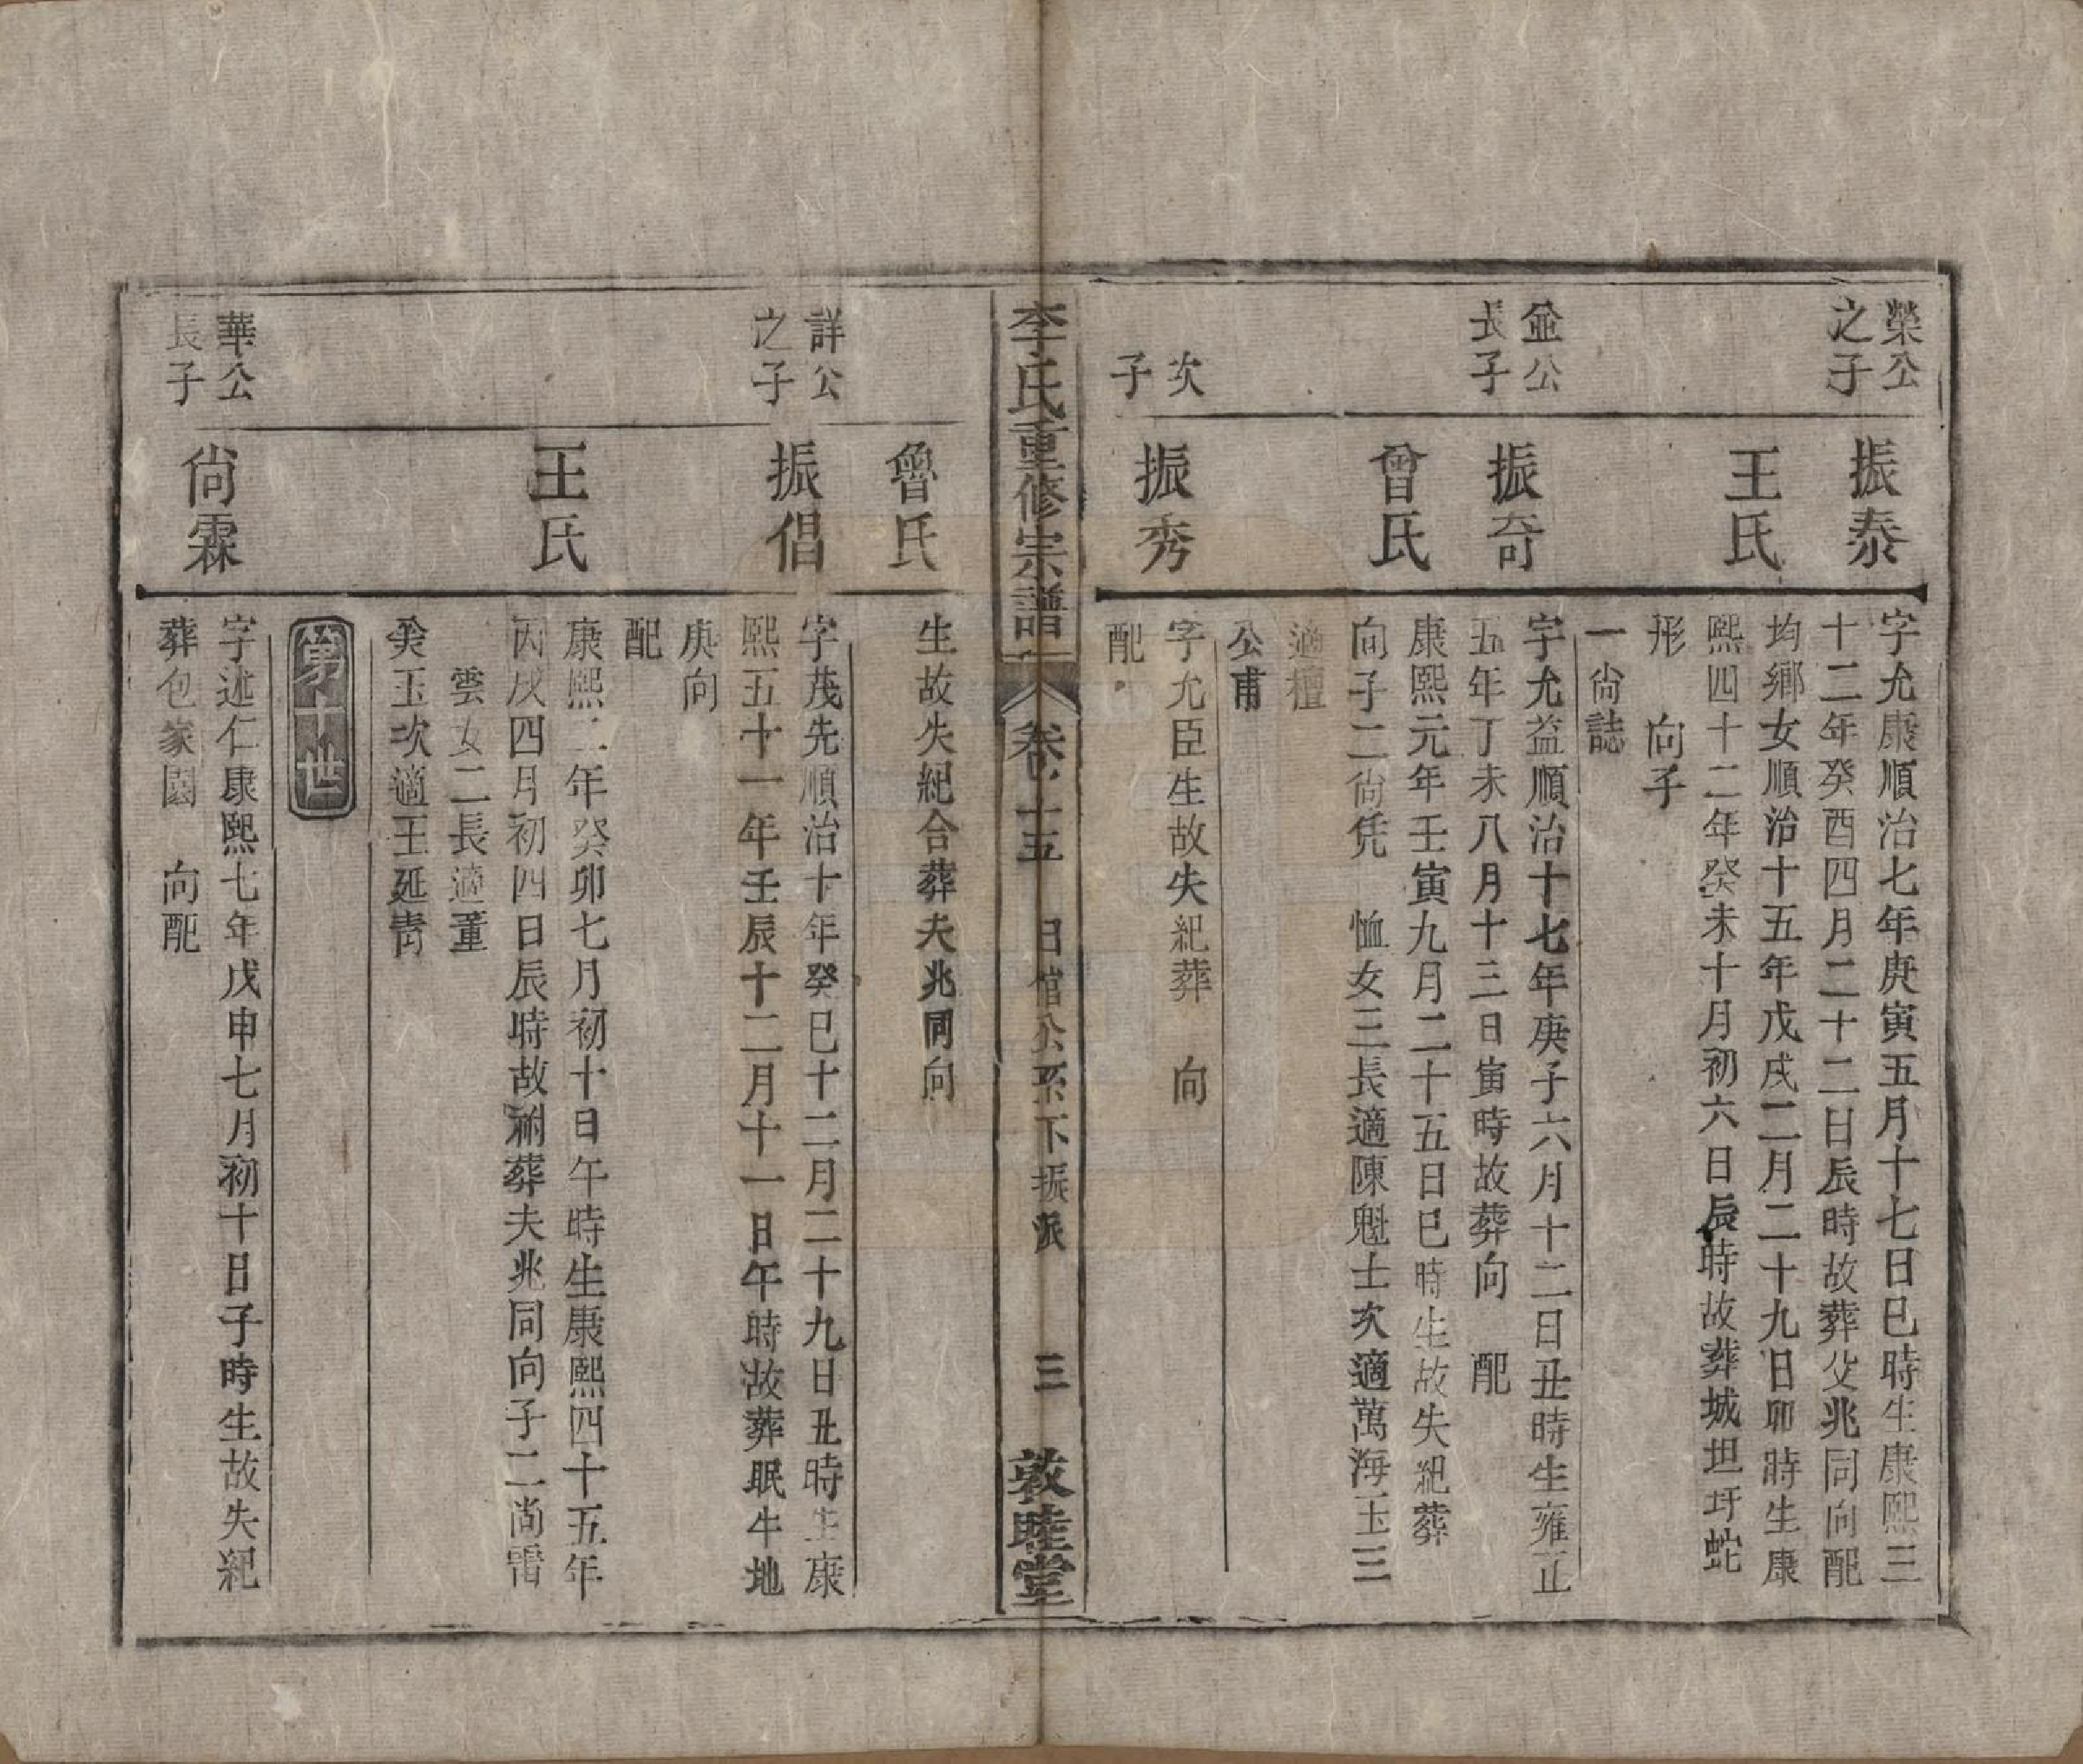 榮公
之子
振泰
字允康順治七年庚寅五月十七日巳時生康熙三
十二年癸酉四月二十二日辰時故葬父兆同向配
王氏
均鄉女順治十五年戊戌二月二十九日卯時生康
熙四十二年癸未十月初六日辰時故葬城坦圩蛇
形　向子
一尙誌
並公
長子
振奇
字允益順治十七年庚子六月十二日丑時生雍正
五年丁未八月十三日寅時故葬向　配
曾氏
康熙元年壬寅九月二十五日巳時生故失紀葬
向子二尙凭　恤女三長適陳魁士次適萬海玉三
適檀
公甫
次
子
振秀
字允臣生故失紀葬　向
配
李氏重修宗譜
卷十五　日  公系下振派　三
敦睦堂
魯氏
生故失紀合葬夫兆同向
詳公
之子
振倡
字茂先順治十年癸巳十二月二十九日丑時生康
熙五十一年壬辰十二月十一日午時故葬眠牛地
庚向
配
王氏
康熙二年癸卯七月初十日午時生康熙四十五年
丙戌四月初四日辰時故祔葬夫兆同向子二尙雷
雲女二長適董
癸玉次適王延靑
第十世
華公
長子
尙霖
字述仁康熙七年戊申七月初十日子時生故失紀
葬包家園　向配